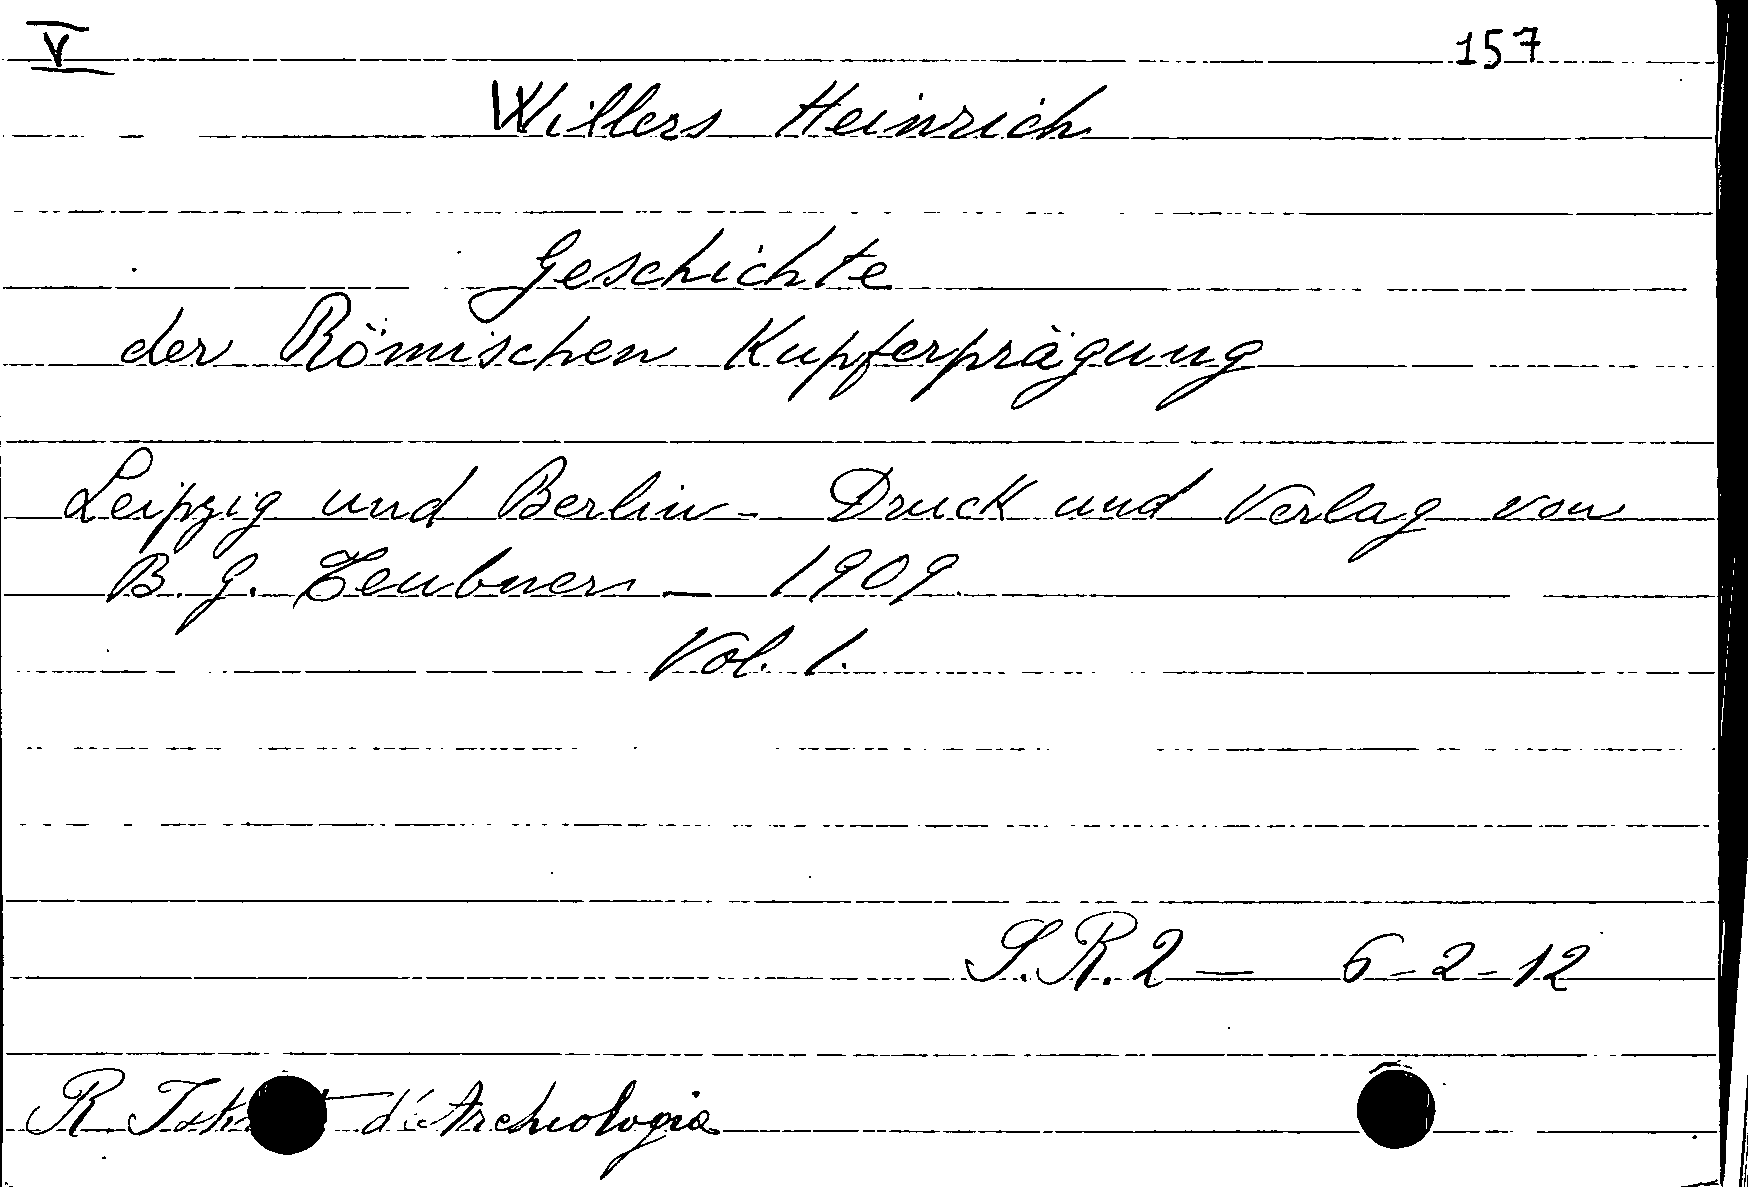 V 157
Willers Heinrich
Geschichte
der Römischen Kupferprägung
Leipzig und Berlin - Druck und Verlag von
B. G. Teubner - 1909
Vol. 1.
S.R.2 - 6-2-12
R d'Archeologia